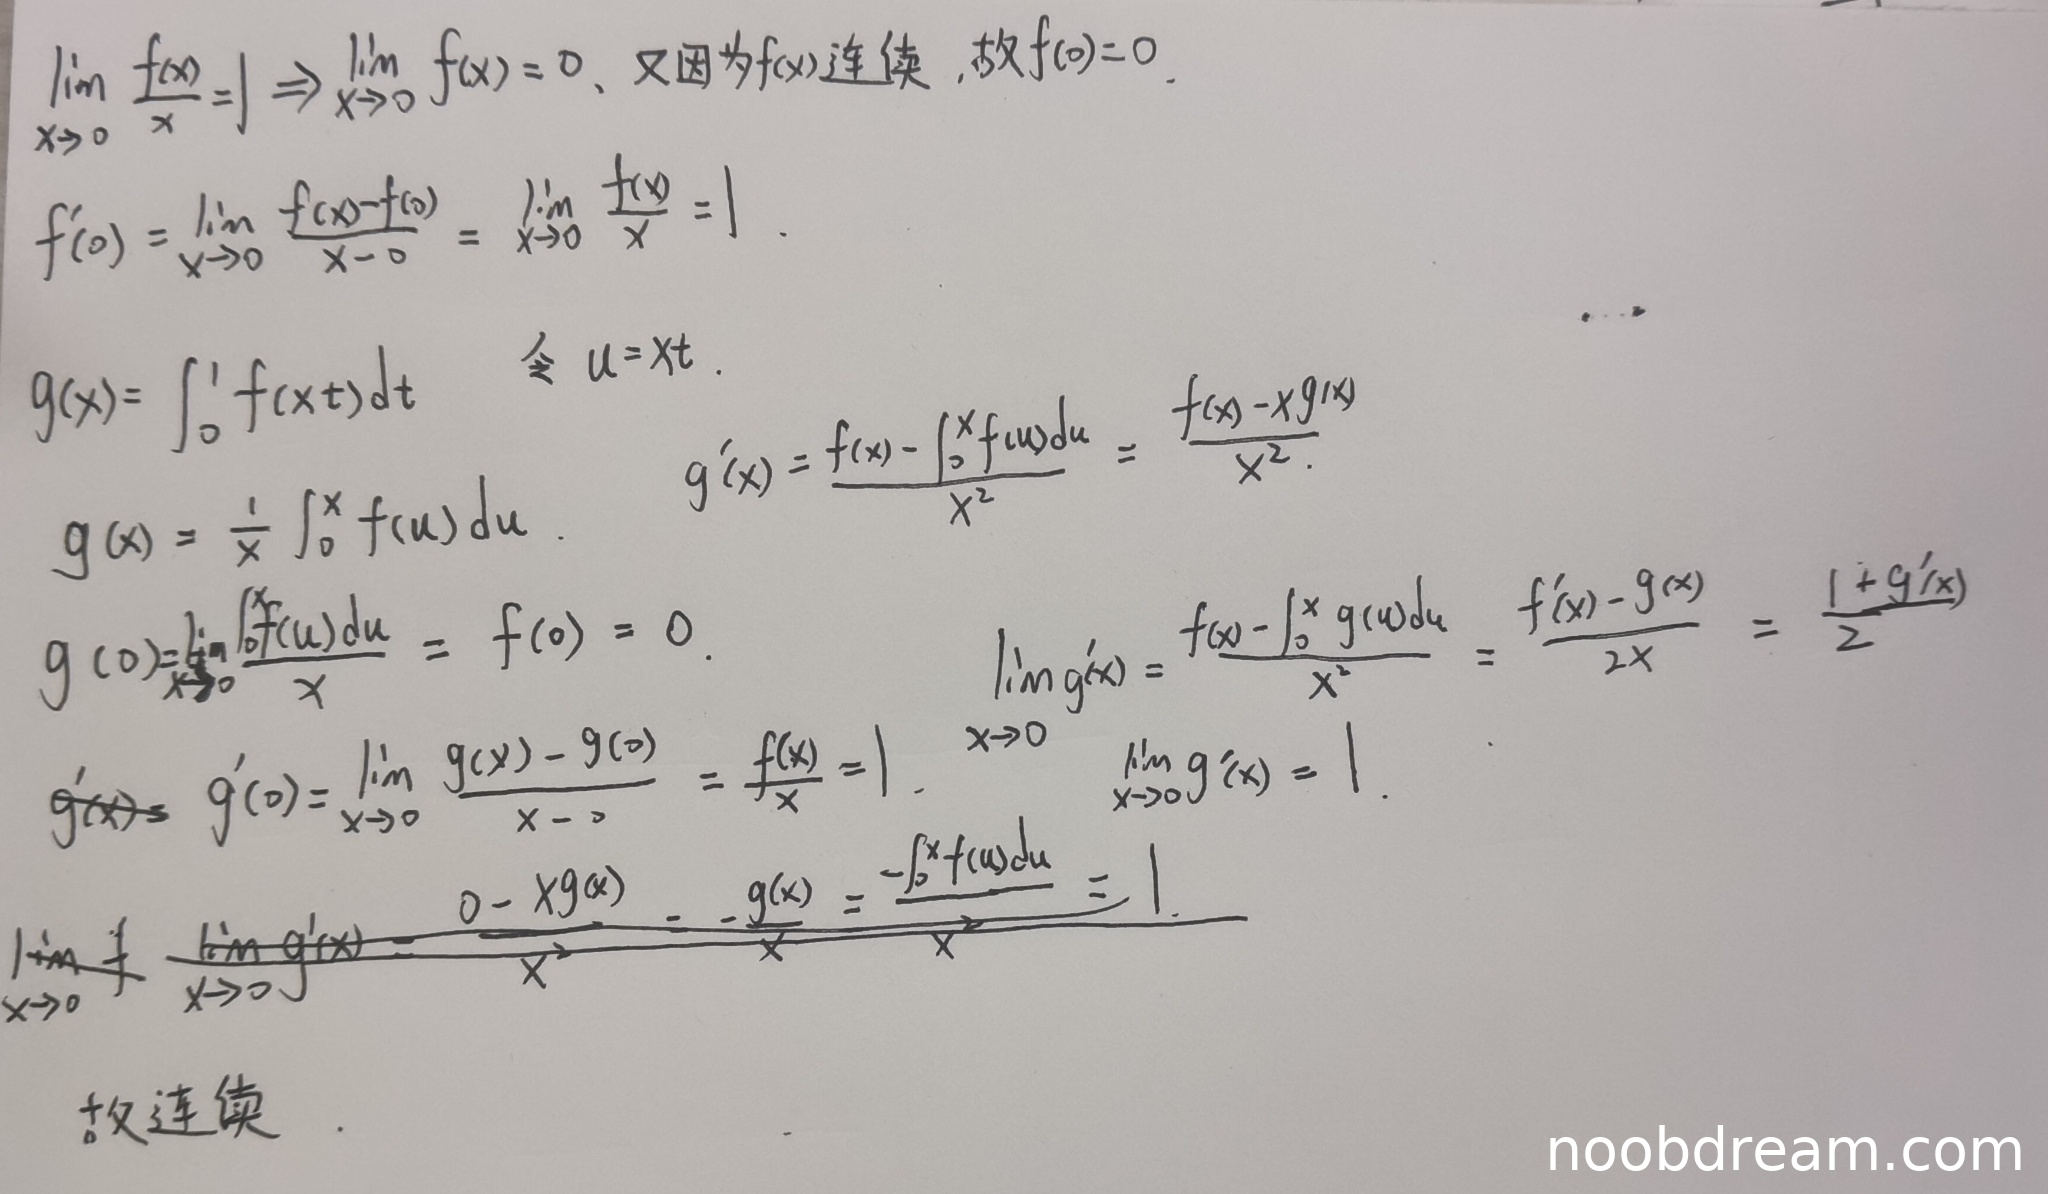 lim_{x→0} f(x)/x = 1 ⇒ lim_{x→0} f(x) = 0、又因为f(x)连续,故f(0)=0.
f'(0) = lim_{x→0} (f(x)-f(0))/(x-0) = lim_{x→0} f(x)/x = 1.
g(x) = ∫_0^1 f(xt)dt 令 u=xt.
g'(x) = (f(x) - ∫_0^x f(u)du)/x² = (f(x) - xg(x))/x².
g(x) = 1/x ∫_0^x f(u)du.
g(0) = lim_{x→0} ∫_0^x f(u)du / x = f(0) = 0.
lim_{x→0} g'(x) = (f(x) - ∫_0^x g(u)du)/x² = (f'(x) - g(x))/2x = (1+g'(x))/2
g'(x)= g'(0) = lim_{x→0} (g(x)-g(0))/(x-0) = f(x)/x = 1.
lim_{x→0} g'(x) = 1.
lim_{x→0} f lim_{x→0} g'(x) = (0-xg(x))/x = -g(x)/x = -∫_0^x f(u)du / x = 1.
故连续.
noobdream.com